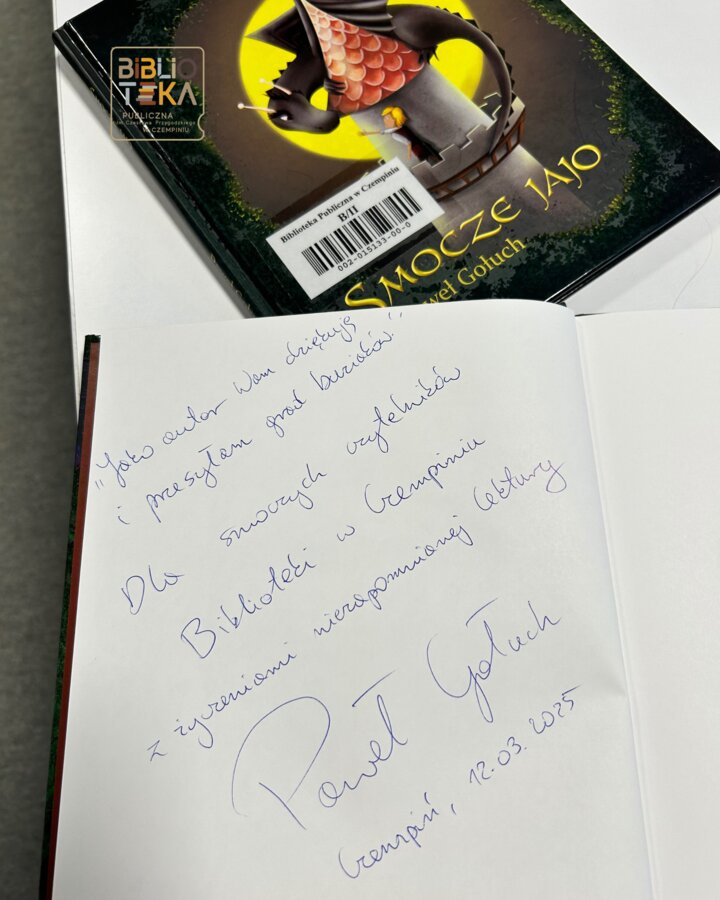 BIBLIO
TEKA
PUBLICZNA
im. Czesława Przygodzkiego
W CZEMPINIU
Biblioteka Publiczna w Czempiniu
B/II
002-015133-00-0
SMOCZE JAJO
Paweł Gołuch
"Jako autor Wam dziękuję
i przesyłam grad buziaków."
Dla smoczych czytelników
Biblioteki w Czempiniu
z życzeniami niezapomnianej lektury
Paweł Gołuch
Czempiń, 12.03.2025